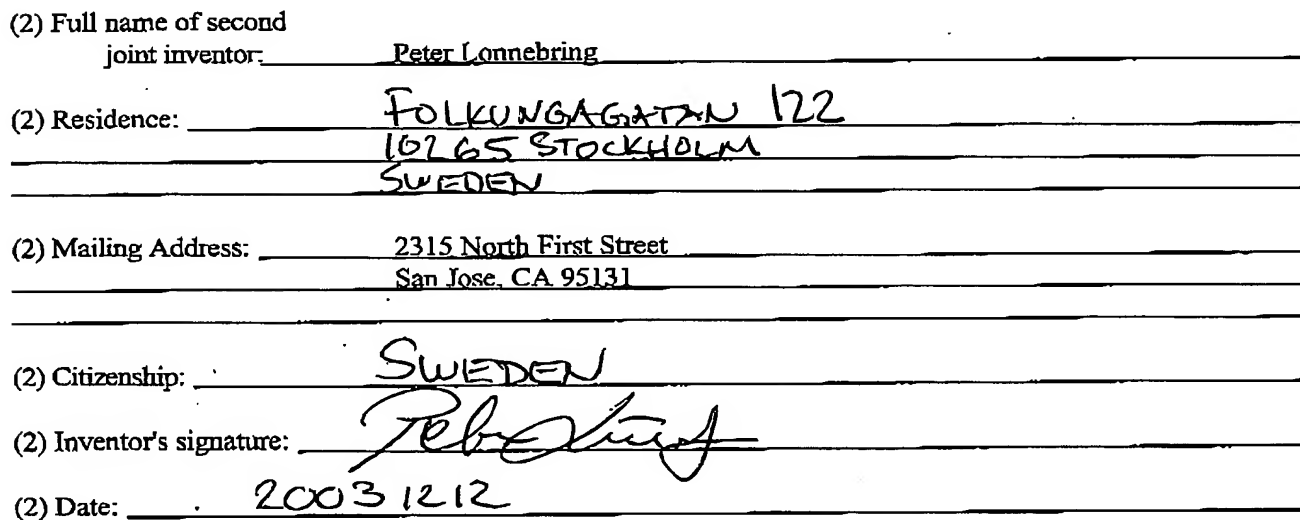 (2) Full name of second
joint inventor: Peter Lonnebring
(2) Residence: FOLKUNGAGATAN 122
10265 STOCKHOLM
SWEDEN
(2) Mailing Address: 2315 North First Street
San Jose, CA 95131
(2) Citizenship: SWEDEN
(2) Inventor's signature:
(2) Date: 20031212